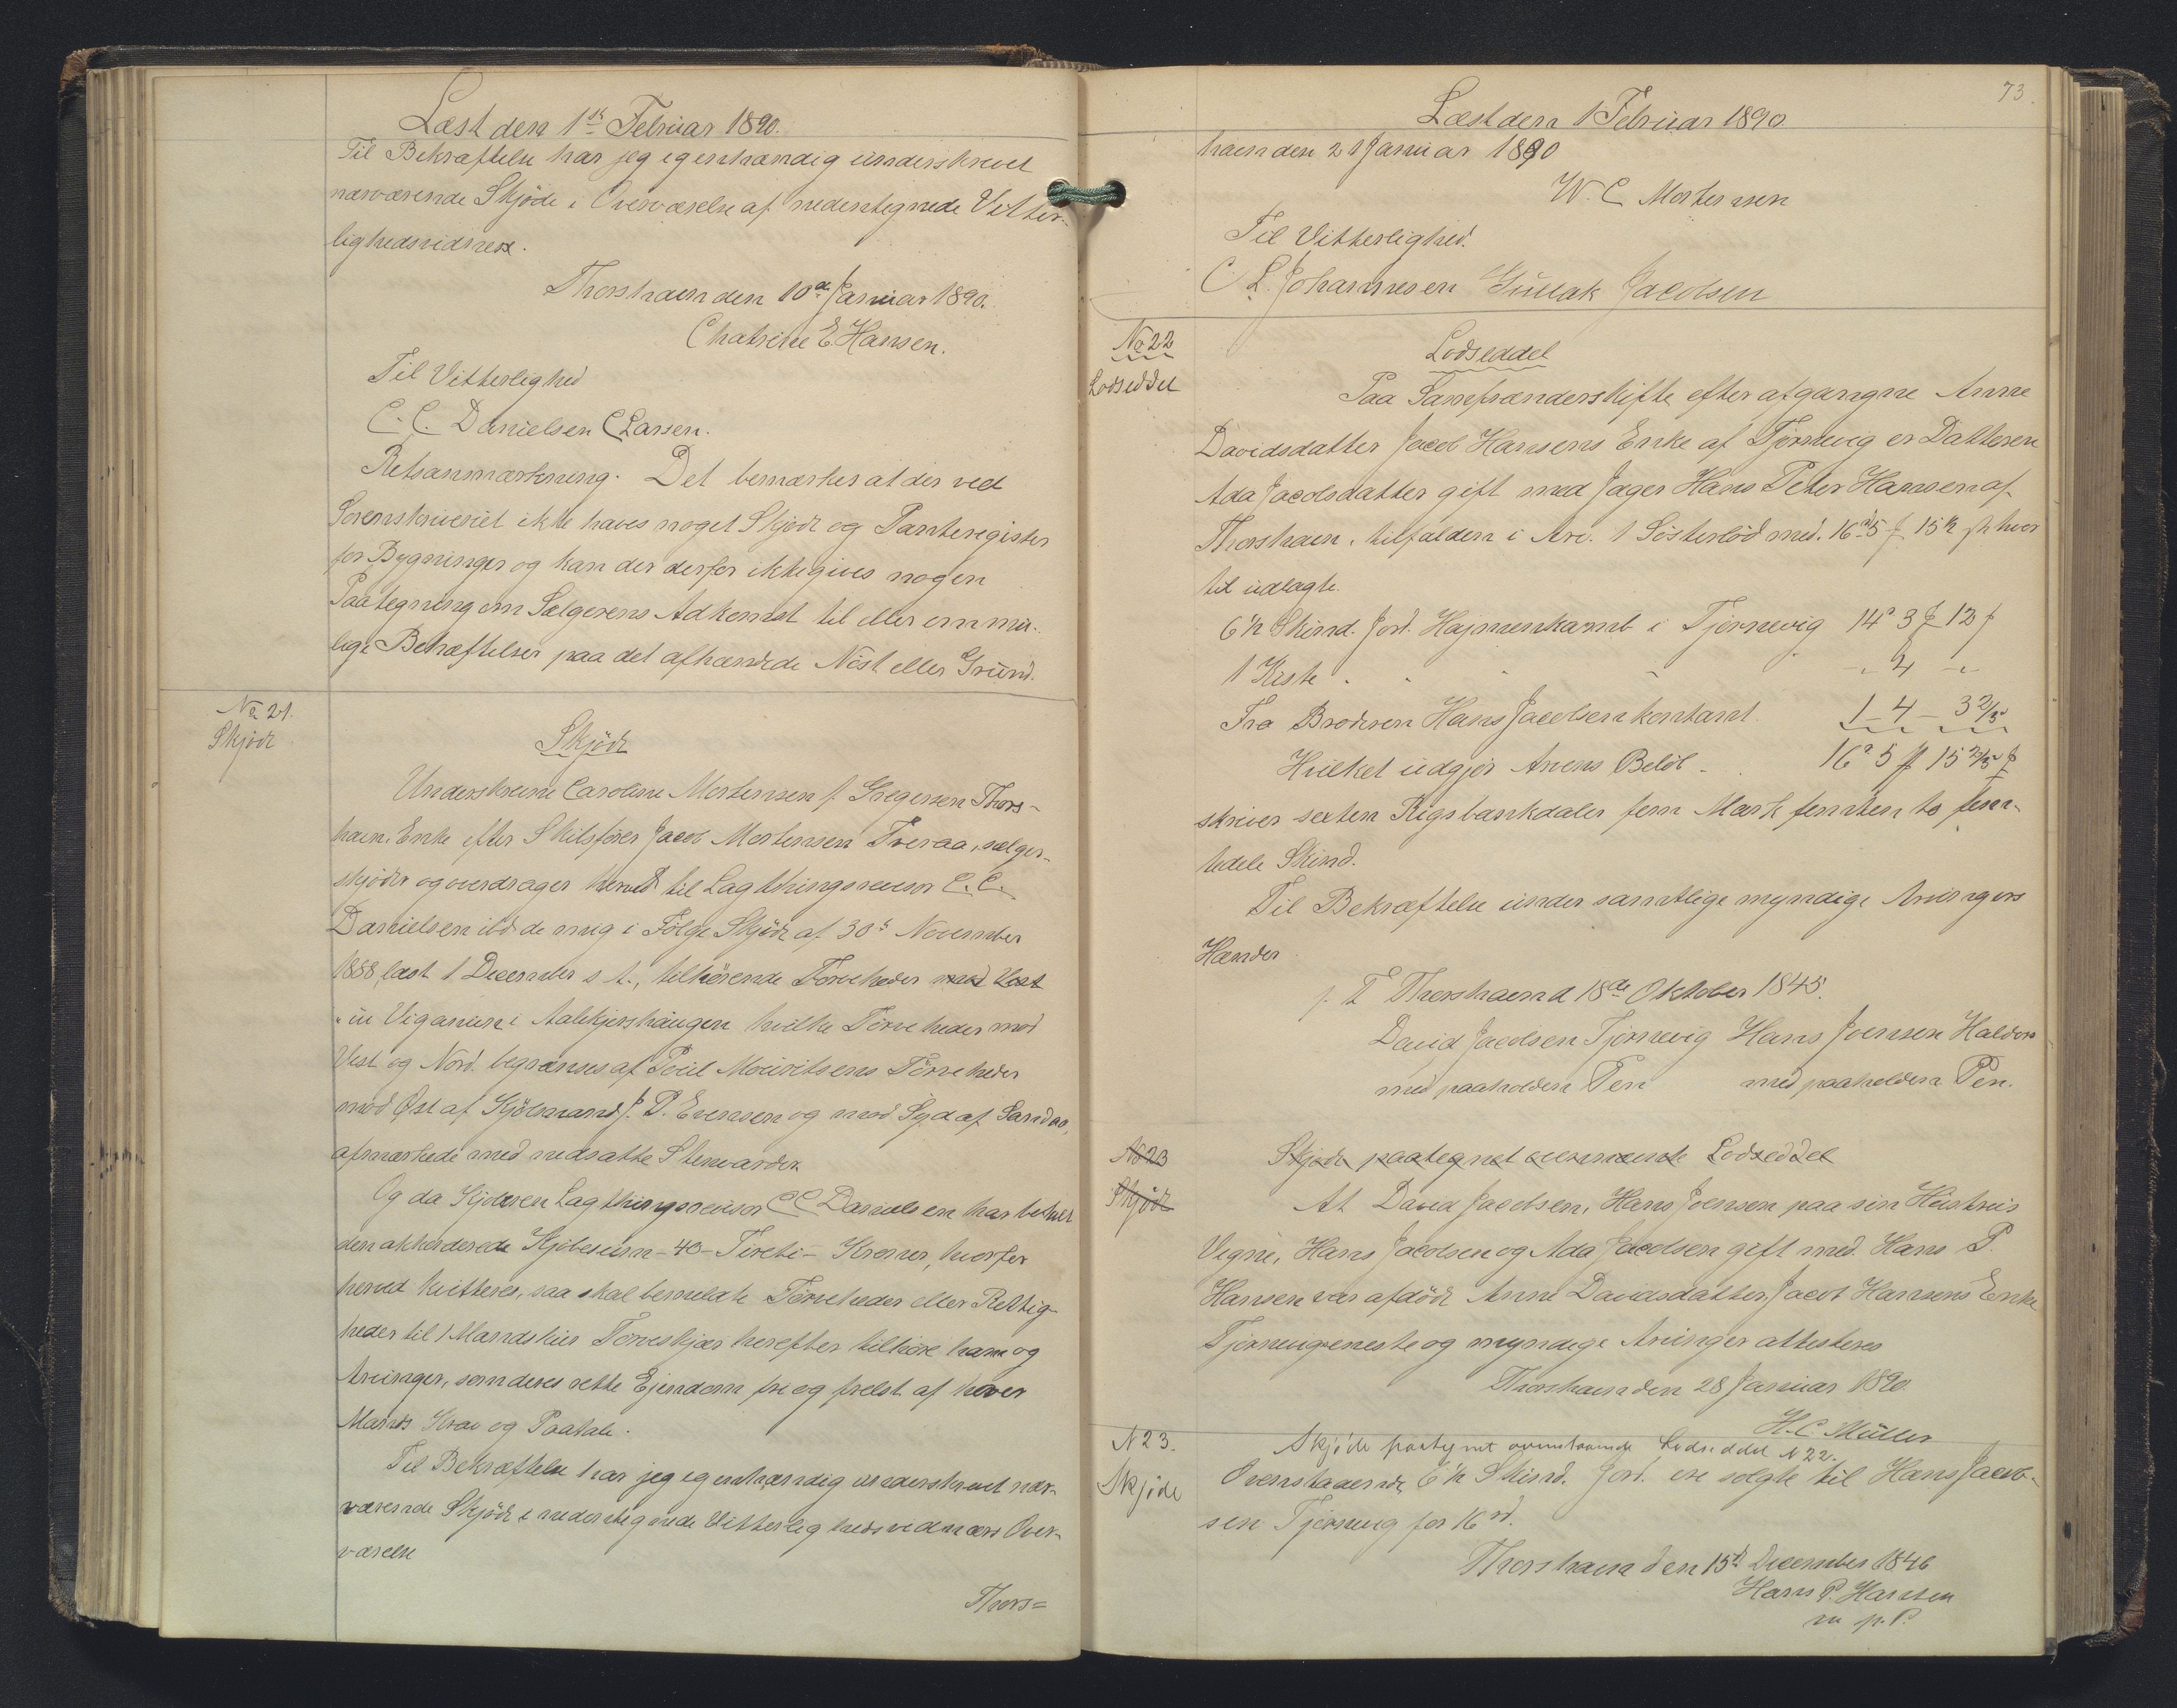 Læst den 1ste Februar 1890.
Til Bekræftelse har jeg egenhændig underskrevet
nærværende Skjøde i Overværelse af nedentegnede Vitter-
lighedsvidner.
Thorshavn den 10de Januar 1890.
Chatrine E Hansen.
Til Vitterlighed
C. C. Danielsen C Larsen.
Retsanmærkning. Det bemærkes at der ved
Sorenskriveriet ikke haves noget Skjøde og Panteregister
for Bygninger og kan der derfor ikke gives nogen
Paategning om Sælgerens Adkomst til eller om mu-
lige Behæftelser paa det afhændede Nøst eller Grund.
No 21.
Skjøde
Skjöde
Underskrevne Caroline Mortensen f. Gregersen Thors-
havn, Enke efter Skibsfører Jacob Mortensen Tveraa, sælger,
skjöder og overdrager herved til Lagthingsrevisor C. C.
Danielsen de mig i Fölge Skjöde af 30te November
1888, læst 1 December s. A., tilhörende Törveheder med Vest
"ui Viganum i Aalekjershaugen hvilke Törveheder mod
Vest og Nord begrænses af Poul Mouritsens Törveheder
mod Øst af Kjöbmand J. P. Evensen og mod Syd af Sandaa,
afmærkede med nedsatte Stenvarder
Og da Kjøberen Lagthingsrevisor C C Danielsen har betalt
den akkorderede Kjöbesum - 40 - Fireti - Kroner, hvorfor
herved kvitteres, saa skal bemeldte Törveheder eller Rettig-
heder til 1 Mandskurs Törveskjær herefter tilhöre ham og
Arvinger, som deres rette Ejendom fri og frelst af hver
Mands Krav og Paatale.
Til Bekræftelse har jeg egenhændig underskrevet nær-
værende Skjöde i nedentegnede Vitterlighedsvidners Over-
værelse
Thors=
73.
Læst den 1 Februar 1890
havn den 21 Januar 1890
W. C Mortensen
Til Vitterlighed.
C. L. Johannesen Gullak Jacobsen
No 22
Lodseddel
Lodseddel
Paa Samfrænderskifte efter afgangne Anne
Davidsdatter Jacob Hansens Enke af Tjørnevig er Datteren
Ada Jacobsdatter gift med Jæger Hans Peter Hansen af
Thorshavn, tilfalden i Arv. 1 Søsterlod med. 16d 5 15 hvor
til udlagte.
6 1/2 Skind. Jord. Hajmenkamb i Tjørnevig 14d 3 12
1 Kiste . . . . 4 "
Fra Broderen Hans Jacobsen kontant 1 - 4 - 3 2/5
Hvilket udgjør Arvens Beløb - 16d 5 15 2/5
skriver sexten Rigsbankdaler fem Mark femten to fem-
tedele Skind.
Til Bekræftelse under samtlige myndige Arvingers
Hænder
p. T Thorshavn d 18de Oktober 1845.
David Jacobsen Tjørnevig Hans Joensen Haldors
med paaholden Pen med paaholden Pen.
No 23
Skjøde
Skjøde paategnet ovennævnte Lodseddel
At David Jacobsen, Hans Joensen paa sin Hustrus
Vegne, Hans Jacobsen og Ada Jacobsen gift med Hans P.
Hansen var afdöde Anne Davidsdatter, Jacob Hansens Enke
Tjørnevig eneste og myndige Arvinger attesteres
Thorshavn den 28 Januar 1890.
H. C. Müller
N 23.
Skjøde
Skjøde paategnet ovenstaaende Lodseddel N 22.
Ovenstaaende 6 1/2 Skind. Jord. ere solgte til Hans Jacob-
sen Tjørnevig for 16 rd.
Thorshavn den 15de December 1846
Hans P. Hansen
m. p. P.